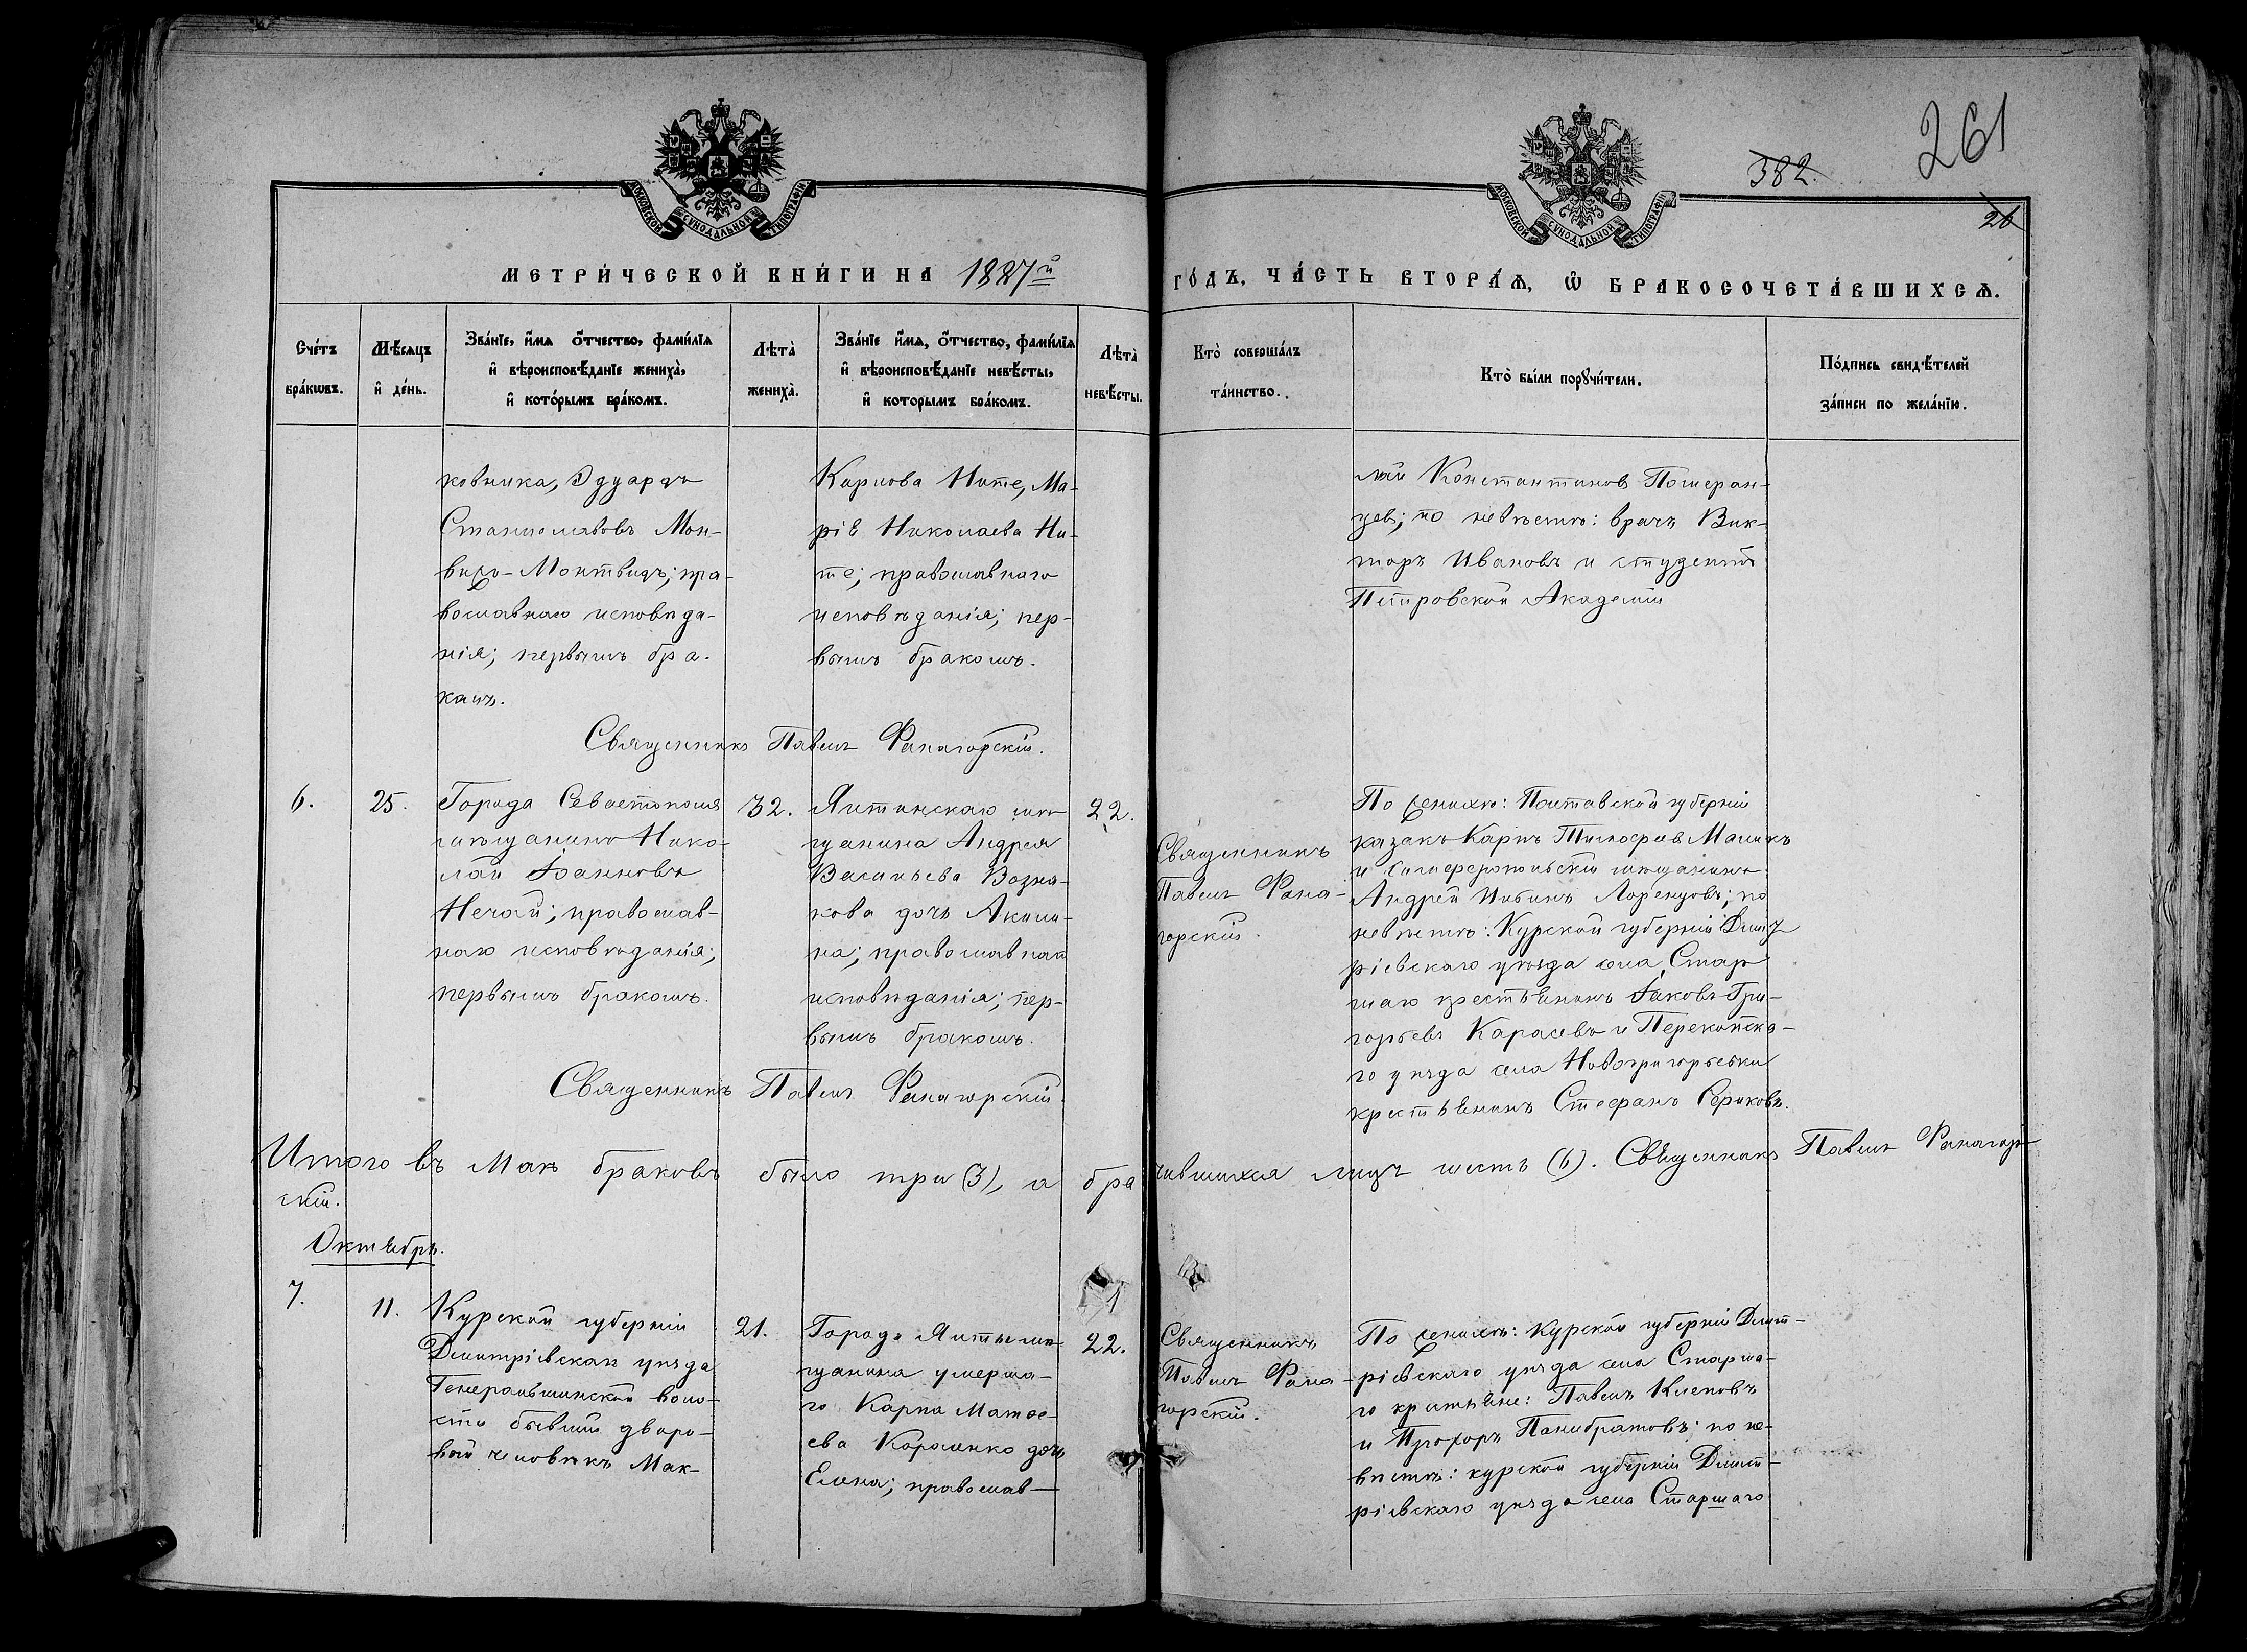 382.
261
26
МОСКОВСКОЙ СѴНОДАЛЬНОЙ ТИПОГРАФІИ
МОСКОВСКОЙ СѴНОДАЛЬНОЙ ТИПОГРАФІИ
МЕТРИ́ЧЕСКОЙ КНИ́ГИ НА 1887й
ГО́ДЪ, ЧА́СТЬ ВТОРА́Ѧ, Ѽ БРАКОСОЧЕТА́ВШИХСѦ.
Сче́тъ
бра́кѡвъ.
Мѣ́сяцъ
и҆ де́нь.
Зва́нїе, и҆́мѧ ѻ҆́тчество, фами́лїѧ
и҆ вѣроисповѣ́данїе жениха̀,
и҆ кото́рымъ бра́комъ.
Лѣта̀
жениха̀.
Зва́нїе и҆́мѧ, ѻ҆́тчество, фами́лїѧ
и҆ вѣроисповѣ́данїе невѣ́сты,
и҆ которымъ бра́комъ.
Лѣта̀
невѣ́сты.
Кто̀ соверша́лъ
та́инство.
Кто̀ бы́ли порꙋчи́тели.
По́дпись свидѣ́телей
за́писи по жела́нїю.
ковника, Эдуардъ
Станиславовъ Мон-
вило-Монтвидъ; пра-
вославнаго исповѣда-
нія; первымъ бра-
камъ.
Карлова Ните, Ма-
рія Николаева Ни-
те; православнаго
исповѣданія; пер-
вымъ бракомъ.
лай Константиновъ Померан-
цев; по невѣстѣ: врачъ Вик-
торъ Ивановъ и студентъ
Петровской Академіи
Священникъ Павелъ Фанагорскій.
6.
25.
Города Севастополя
мѣщанинъ Нико-
лай Іоанновъ
Нечай; православ-
наго исповѣданія;
первымъ бракомъ.
32.
Ялтинскаго мѣ-
щанина Андрея
Васильева Возня-
кова дочь Акили-
на; православнаго
исповѣданія; пер-
вымъ бракомъ.
22.
Священникъ
Павелъ Фана-
горскій.
По женихѣ: Полтавской губерніи
казакъ Карпъ Тимофеевъ Маликъ
и Симферопольскій мѣщанинъ
Андрей Лоренцовъ; по
невѣстѣ: Курской губерніи Дмит-
ріевскаго уѣзда села Стар-
шаго крестьянинъ Іаковъ Гри-
горьевъ Карасевъ и Перекопска-
го уѣзда села Новогригорьевки
крестьянинъ Стефанъ
Священникъ Павелъ Фанагорскій.
Итого въ Маѣ браковъ было три (3), а бра чившихся лицъ шесть (6). Священникъ Павелъ Фанагор-
скій.
Октябрь.
7.
11.
Курской губерніи
Дмитріевскаго уѣзда
Генеральшинской воло-
сти бывшій дворо-
вый человѣкъ Мак-
21.
Города Ялты мѣ-
щанина умерша-
го Карпа Матѳе-
ева дочь
Елена; православ-
22.
Священникъ
Павелъ Фана-
горскій.
По женихѣ: Курской губерніи Дмит-
ріевскаго уѣзда села Старша-
го крестьяне: Павелъ Клеповъ
и Прохоръ Панибратовъ; по не-
вѣстѣ: курской губерніи Дмит-
ріевскаго уѣзда села Старшаго